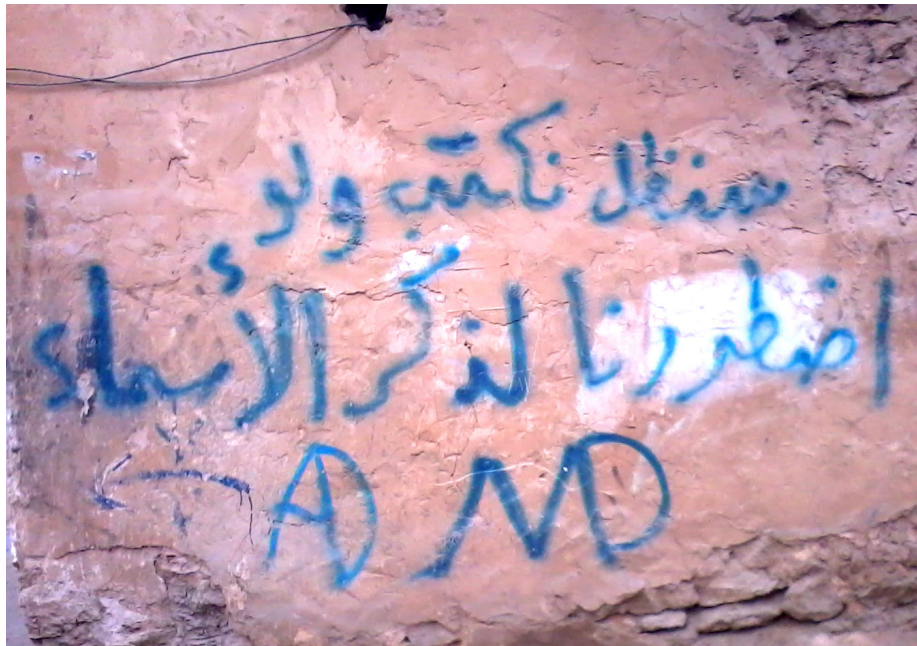 سنظل نكتب ولو
اضطررنا لذكر الأسماء
AD MD